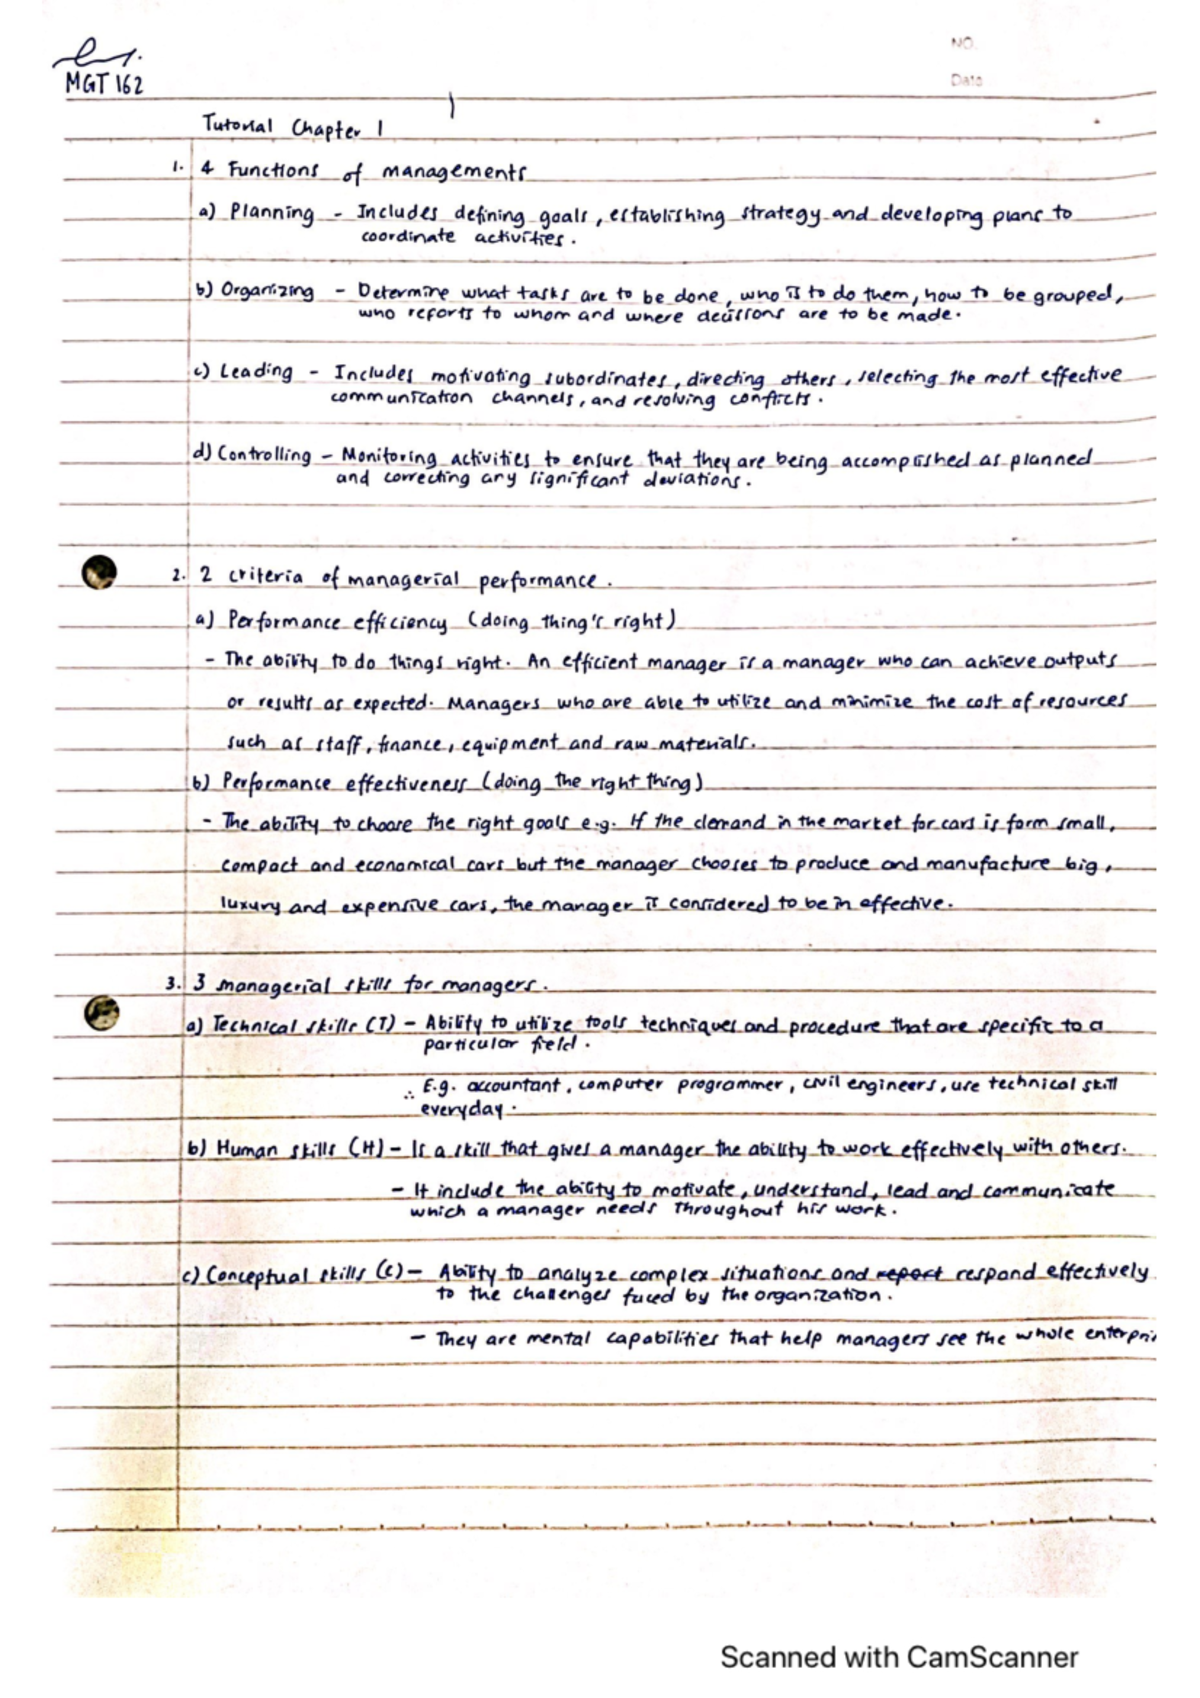 MGT 162
NO.
Date
Tutorial Chapter 1
1. 4 Functions of managements
a) Planning - Includes defining goals, establishing strategy and developing plans to
coordinate activities.
b) Organizing - Determine what tasks are to be done, who is to do them, how to be grouped,
who reports to whom and where decisions are to be made.
c) Leading - Includes motivating subordinates, directing others, selecting the most effective
communication channels, and resolving conflicts.
d) Controlling - Monitoring activities to ensure that they are being accomplished as planned
and correcting any significant deviations.
2. 2 criteria of managerial performance.
a) Performance efficiency (doing thing's right)
- The ability to do things right. An efficient manager is a manager who can achieve outputs
or results as expected. Managers who are able to utilize and minimize the cost of resources
such as staff, finance, equipment and raw materials.
b) Performance effectiveness (doing the right thing)
- The ability to choose the right goals e.g. If the demand in the market for cars is form small,
compact and economical cars but the manager chooses to produce and manufacture big,
luxury and expensive cars, the manager is considered to be in effective.
3. 3 managerial skills for managers.
a) Technical skills (T) - Ability to utilize tools techniques and procedure that are specific to a
particular field.
∴ E.g. accountant, computer programmer, civil engineers, use technical skill
everyday.
b) Human skills (H) - Is a skill that gives a manager the ability to work effectively with others.
- It include the ability to motivate, understand, lead and communicate
which a manager needs throughout his work.
c) Conceptual skills (C) - Ability to analyze complex situations and report respond effectively
to the challenges faced by the organization.
- They are mental capabilities that help managers see the whole enterpri
Scanned with CamScanner